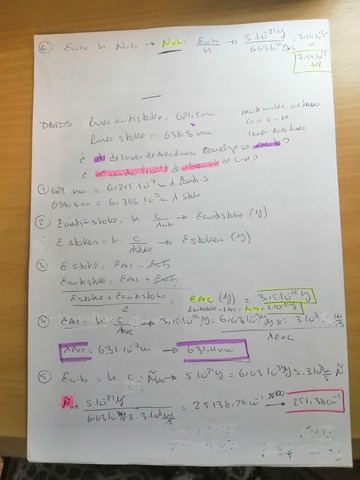 ⑥ Evib = h · ν̃vib → ν̃vib = Evib / h → 5·10⁻²¹ J / 6,63·10⁻³⁴ J·s = 7,54·10¹²
7,54·10¹² Hz
DATOS: línea antistoke = 621,5 nm
línea stoke = 638,5 nm
¿ λ de láser de ?
¿ nº onda (cm⁻¹) de C-H?
① 621 nm = 6,215·10⁻⁷ m λ Anti-S
638,5 nm = 6,385·10⁻⁷ m λ Stoke
② Eantistoke = h · c / λanti → Eantistoke (J)
Estoke = h · c / λstoke → Estoke (J)
③ Estoke = Eexc − Evib
Eantistoke = Eexc + Evib
Estoke + Eantistoke / 2 = Eexc (J) = 3,15·10⁻¹⁹ J
Eantistoke − Eexc = Evib = 5·10⁻²¹ J
④ Eexc = h · c / λexc → 3,15·10⁻¹⁹ J = 6,63·10⁻³⁴ J·s · 3·10⁸ m/s / λexc
λexc = 631·10⁻⁹ m → 631,4 nm
⑤ Evib = h · c · ν̃vib → 5·10⁻²¹ J = 6,63·10⁻³⁴ J·s · 3·10⁸ m/s · ν̃
ν̃ = 5·10⁻²¹ J / 6,63·10⁻³⁴ J·s · 3·10⁸ m/s = 25138,26 m⁻¹ → 251,38 cm⁻¹